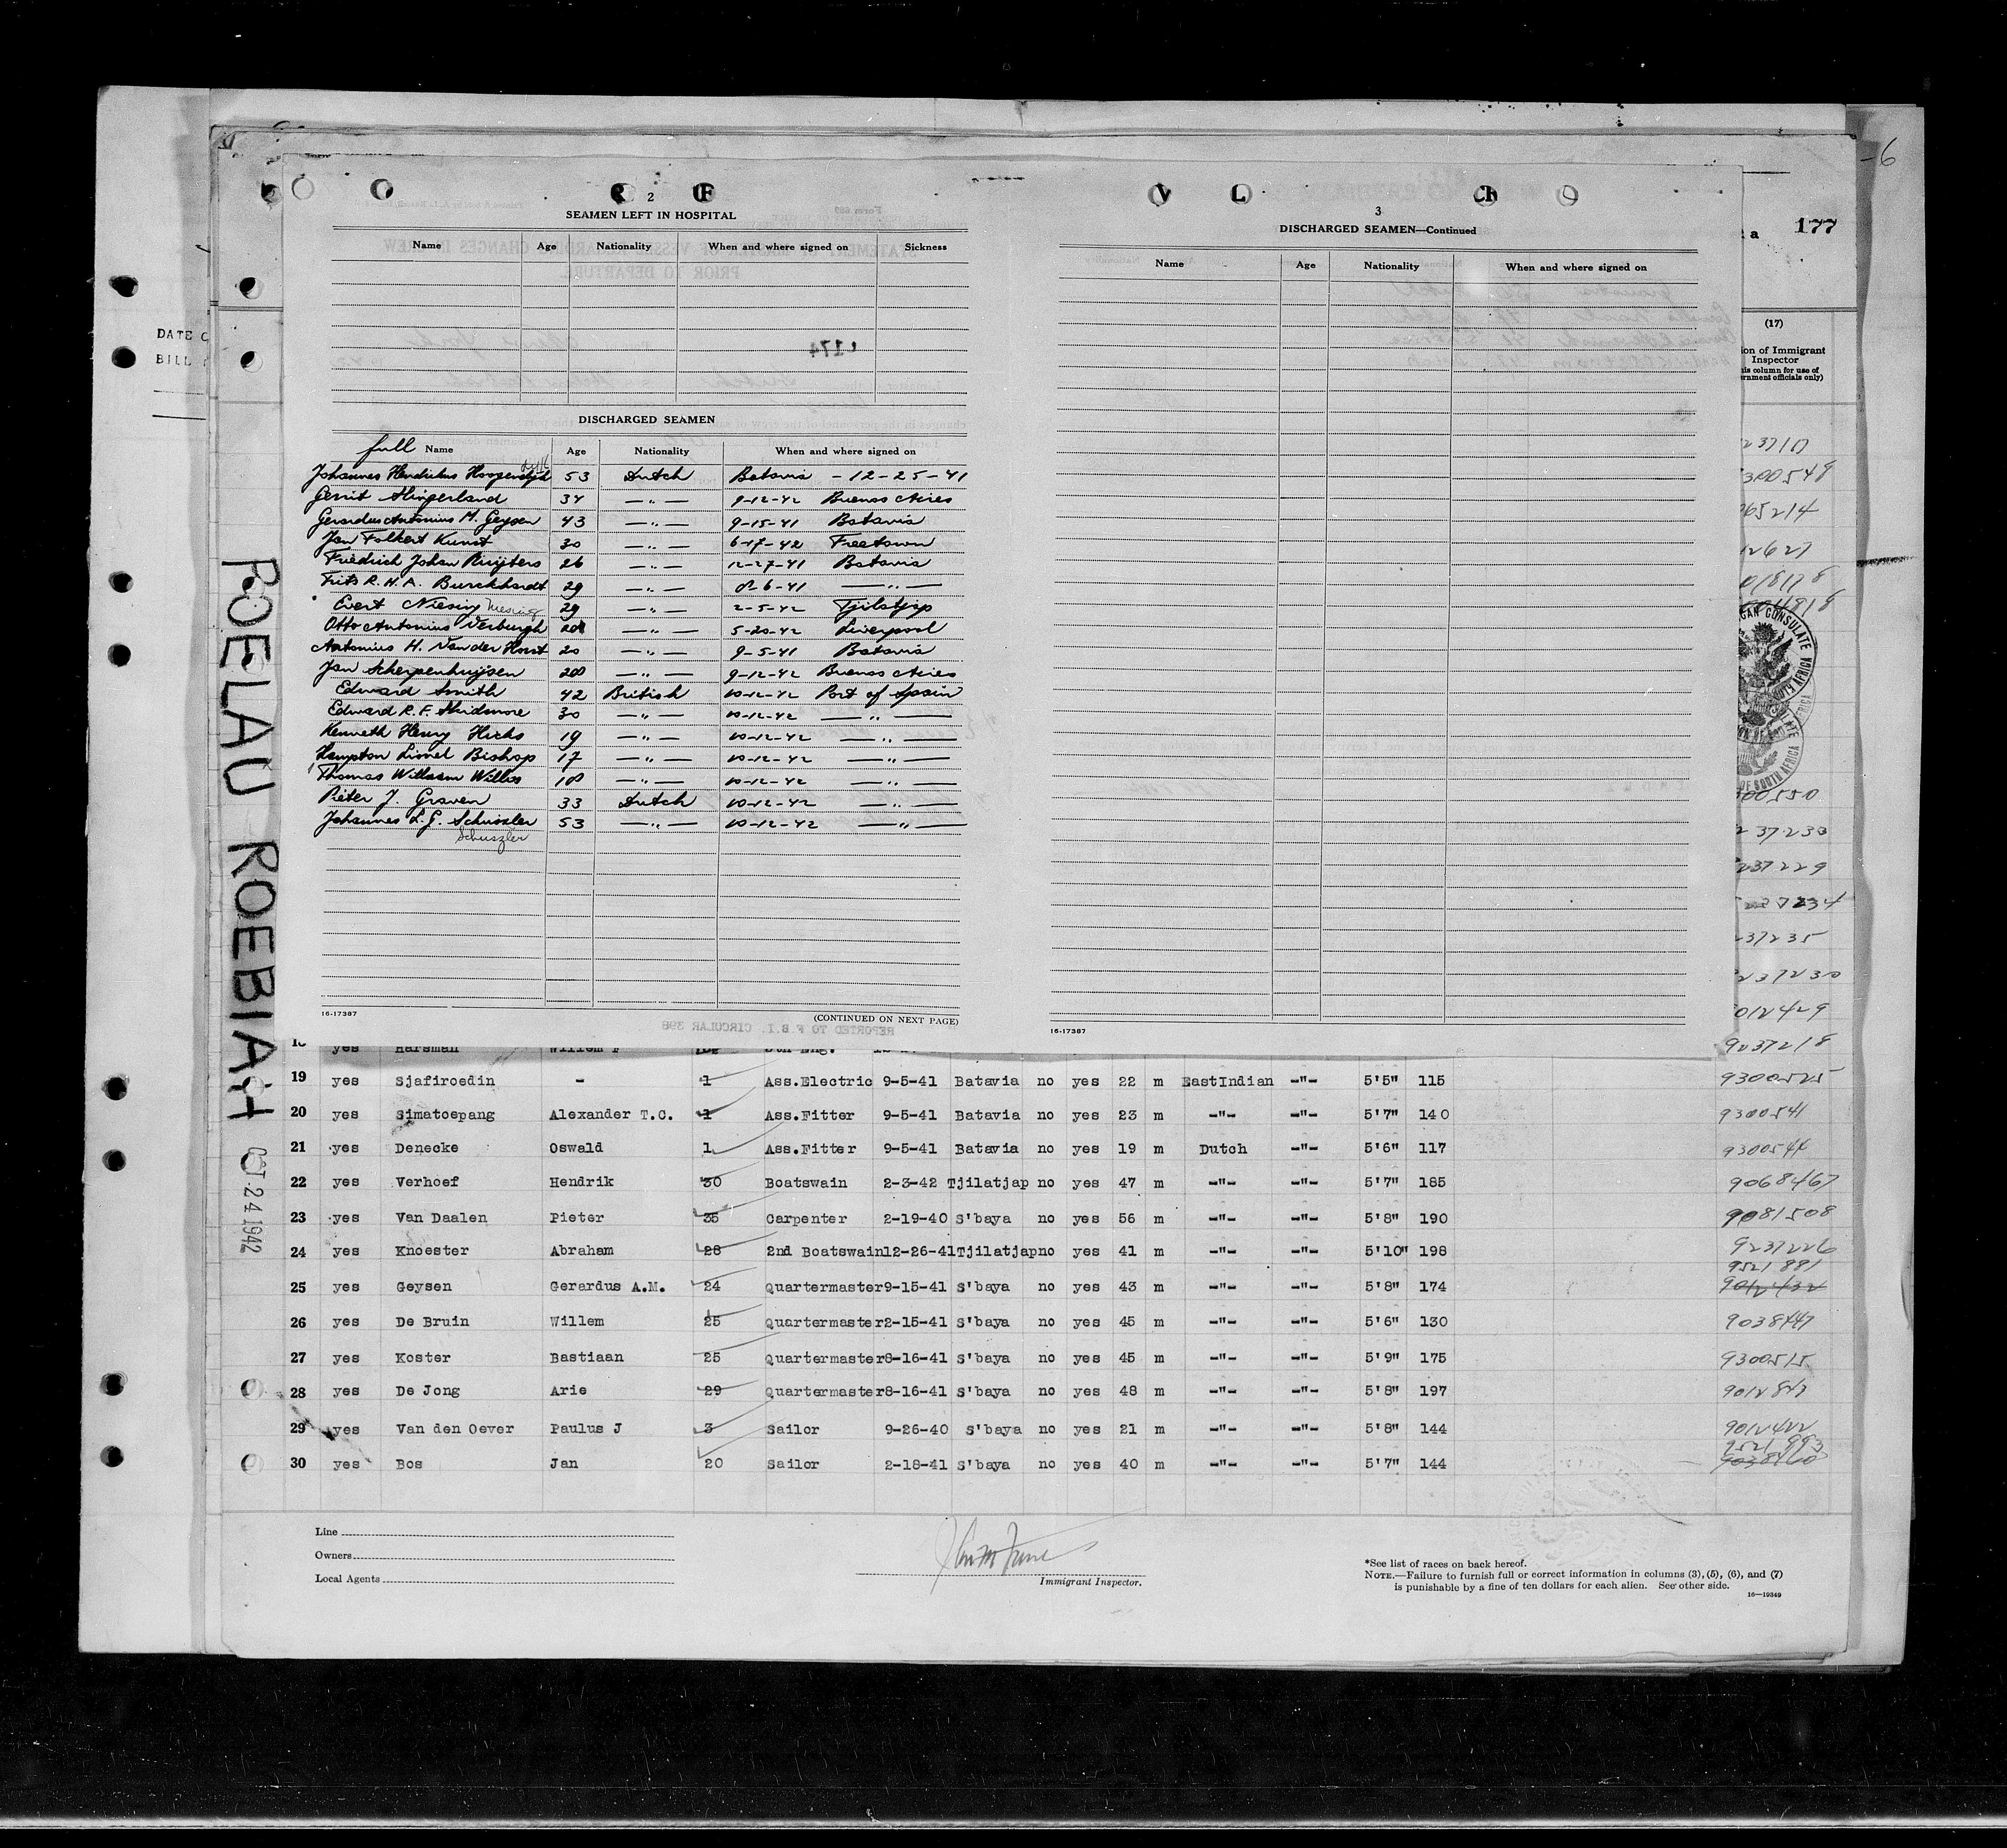 6
177
a
DATE
BILL
(17)
ion of Immigrant
Inspector
his column for use of
ernment officials only)
POELAU ROEBIAH
OCT 24 1942
2
SEAMEN LEFT IN HOSPITAL
Name Age Nationality When and where signed on Sickness
174
DISCHARGED SEAMEN
full Name Age Nationality When and where signed on
Johannes Hendrikus Hoogendijk 53 Dutch Batavia - 12-25-41
Gerrit Slingerland 34 —"— 9-12-42 Buenos Aires
Gerardus Antonius M. Geysen 43 —"— 9-15-41 Batavia
Jan Folkert Kunst 30 —"— 6-17-42 Freetown
Friedrich Johan Ruijters 26 —"— 12-27-41 Batavia
Frits R.H.A. Burckhardt 29 —"— 8-6-41 —"—
Evert Niesing Niesing 29 —"— 2-5-42 Tjilatjap
Otto Antonius Verburgh —"— 5-20-42 Liverpool
Antonius H. Van der Horst 20 —"— 9-5-41 Batavia
Jan Scherpenhuijsen 28 —"— 9-12-42 Buenos Aires
Edward Smith 42 British 10-12-42 Port of Spain
Edward R.F. Skidmore 30 —"— 10-12-42 —"—
Kenneth Henry Hicks 19 —"— 10-12-42 —"—
Hampton Lionel Bishop 17 —"— 10-12-42 —"—
Thomas William Willis 18 —"— 10-12-42 —"—
Pieter J. Graven 33 Dutch 10-12-42 —"—
Johannes L.G. Schuszler 53 —"— 10-12-42 —"—
Schuszler
16-17387 (CONTINUED ON NEXT PAGE)
REPORTED TO F.B.I. CIRCULAR 398
3
DISCHARGED SEAMEN—Continued
Name Age Nationality When and where signed on
16-17387
237230
237229
237235
237230
012429
18 yes Harsman Willem F 5th Eng. 9237218
19 yes Sjafiroedin - 1 Ass.Electric 9-5-41 Batavia no yes 22 m EastIndian -"- 5'5" 115 9300525
20 yes Simatoepang Alexander T.C. 1 Ass.Fitter 9-5-41 Batavia no yes 23 m -"- -"- 5'7" 140 9300541
21 yes Denecke Oswald 1 Ass.Fitter 9-5-41 Batavia no yes 19 m Dutch -"- 5'6" 117 9300544
22 yes Verhoef Hendrik 30 Boatswain 2-3-42 Tjilatjap no yes 47 m -"- -"- 5'7" 185 9068467
23 yes Van Daalen Pieter 35 Carpenter 2-19-40 S'baya no yes 56 m -"- -"- 5'8" 190 9081508
24 yes Knoester Abraham 28 2nd Boatswain 12-26-41 Tjilatjap no yes 41 m -"- -"- 5'10" 198 9237226
9521881
25 yes Geysen Gerardus A.M. 24 Quartermaster 9-15-41 S'baya no yes 43 m -"- -"- 5'8" 174 9012432
26 yes De Bruin Willem 25 Quartermaster 2-15-41 S'baya no yes 45 m -"- -"- 5'6" 130 9038447
27 yes Koster Bastiaan 25 Quartermaster 8-16-41 S'baya no yes 45 m -"- -"- 5'9" 175 9300515
28 yes De Jong Arie 29 Quartermaster 8-16-41 S'baya no yes 48 m -"- -"- 5'8" 197
29 yes Van den Oever Paulus J 3 Sailor 9-26-40 S'baya no yes 21 m -"- -"- 5'8" 144 9012422
9521993
30 yes Bos Jan 20 Sailor 2-18-41 S'baya no yes 40 m -"- -"- 5'7" 144 9038460
Line
Owners
Local Agents
Immigrant Inspector.
*See list of races on back hereof.
NOTE.—Failure to furnish full or correct information in columns (3), (5), (6), and (7)
is punishable by a fine of ten dollars for each alien. See other side.
16—19349